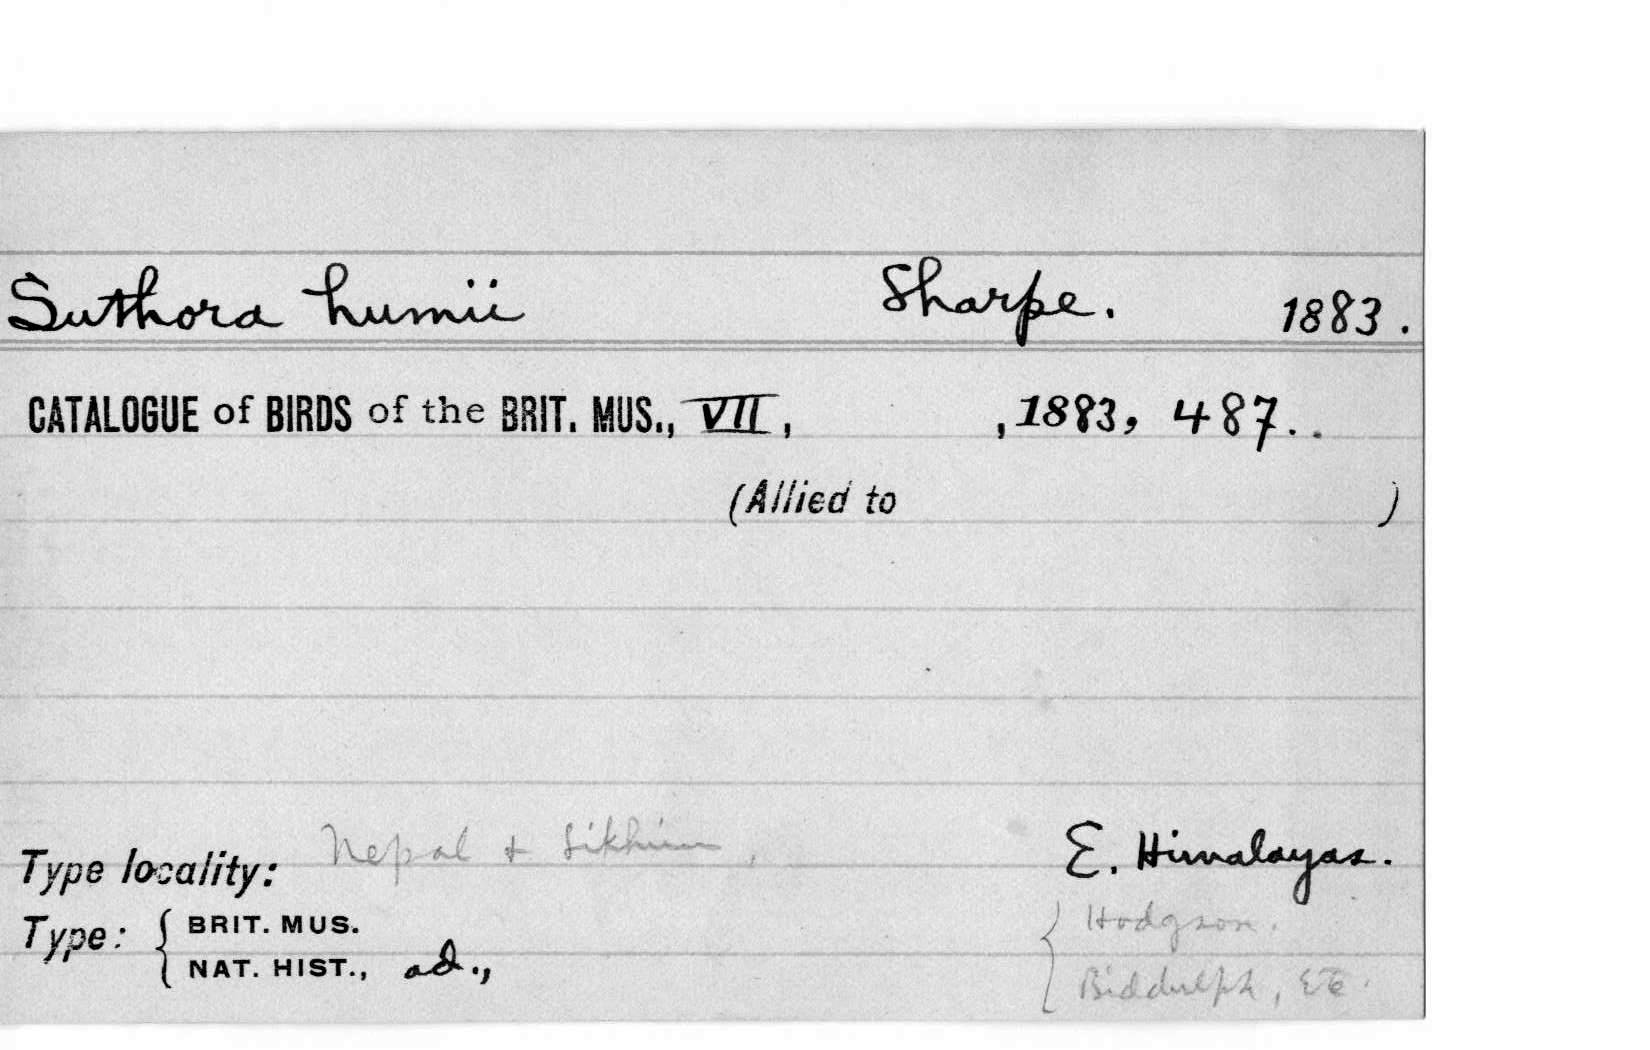 Suthora humii Sharpe. 1883.
CATALOGUE of BIRDS of the BRIT. MUS., VII, , 1883, 487..
(Allied to )
Type locality: Nepal + Sikhim, E. Himalayas.
Type: { BRIT. MUS. { Hodgson.
NAT. HIST., ad., Biddulph, Etc.